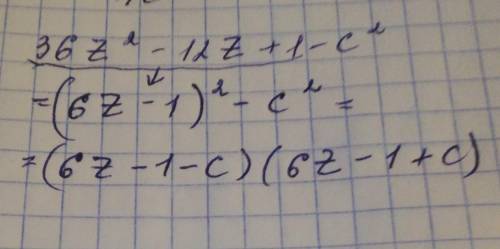 36z² - 12z + 1 - c²
= (6z - 1)² - c² =
= (6z - 1 - c) (6z - 1 + c)